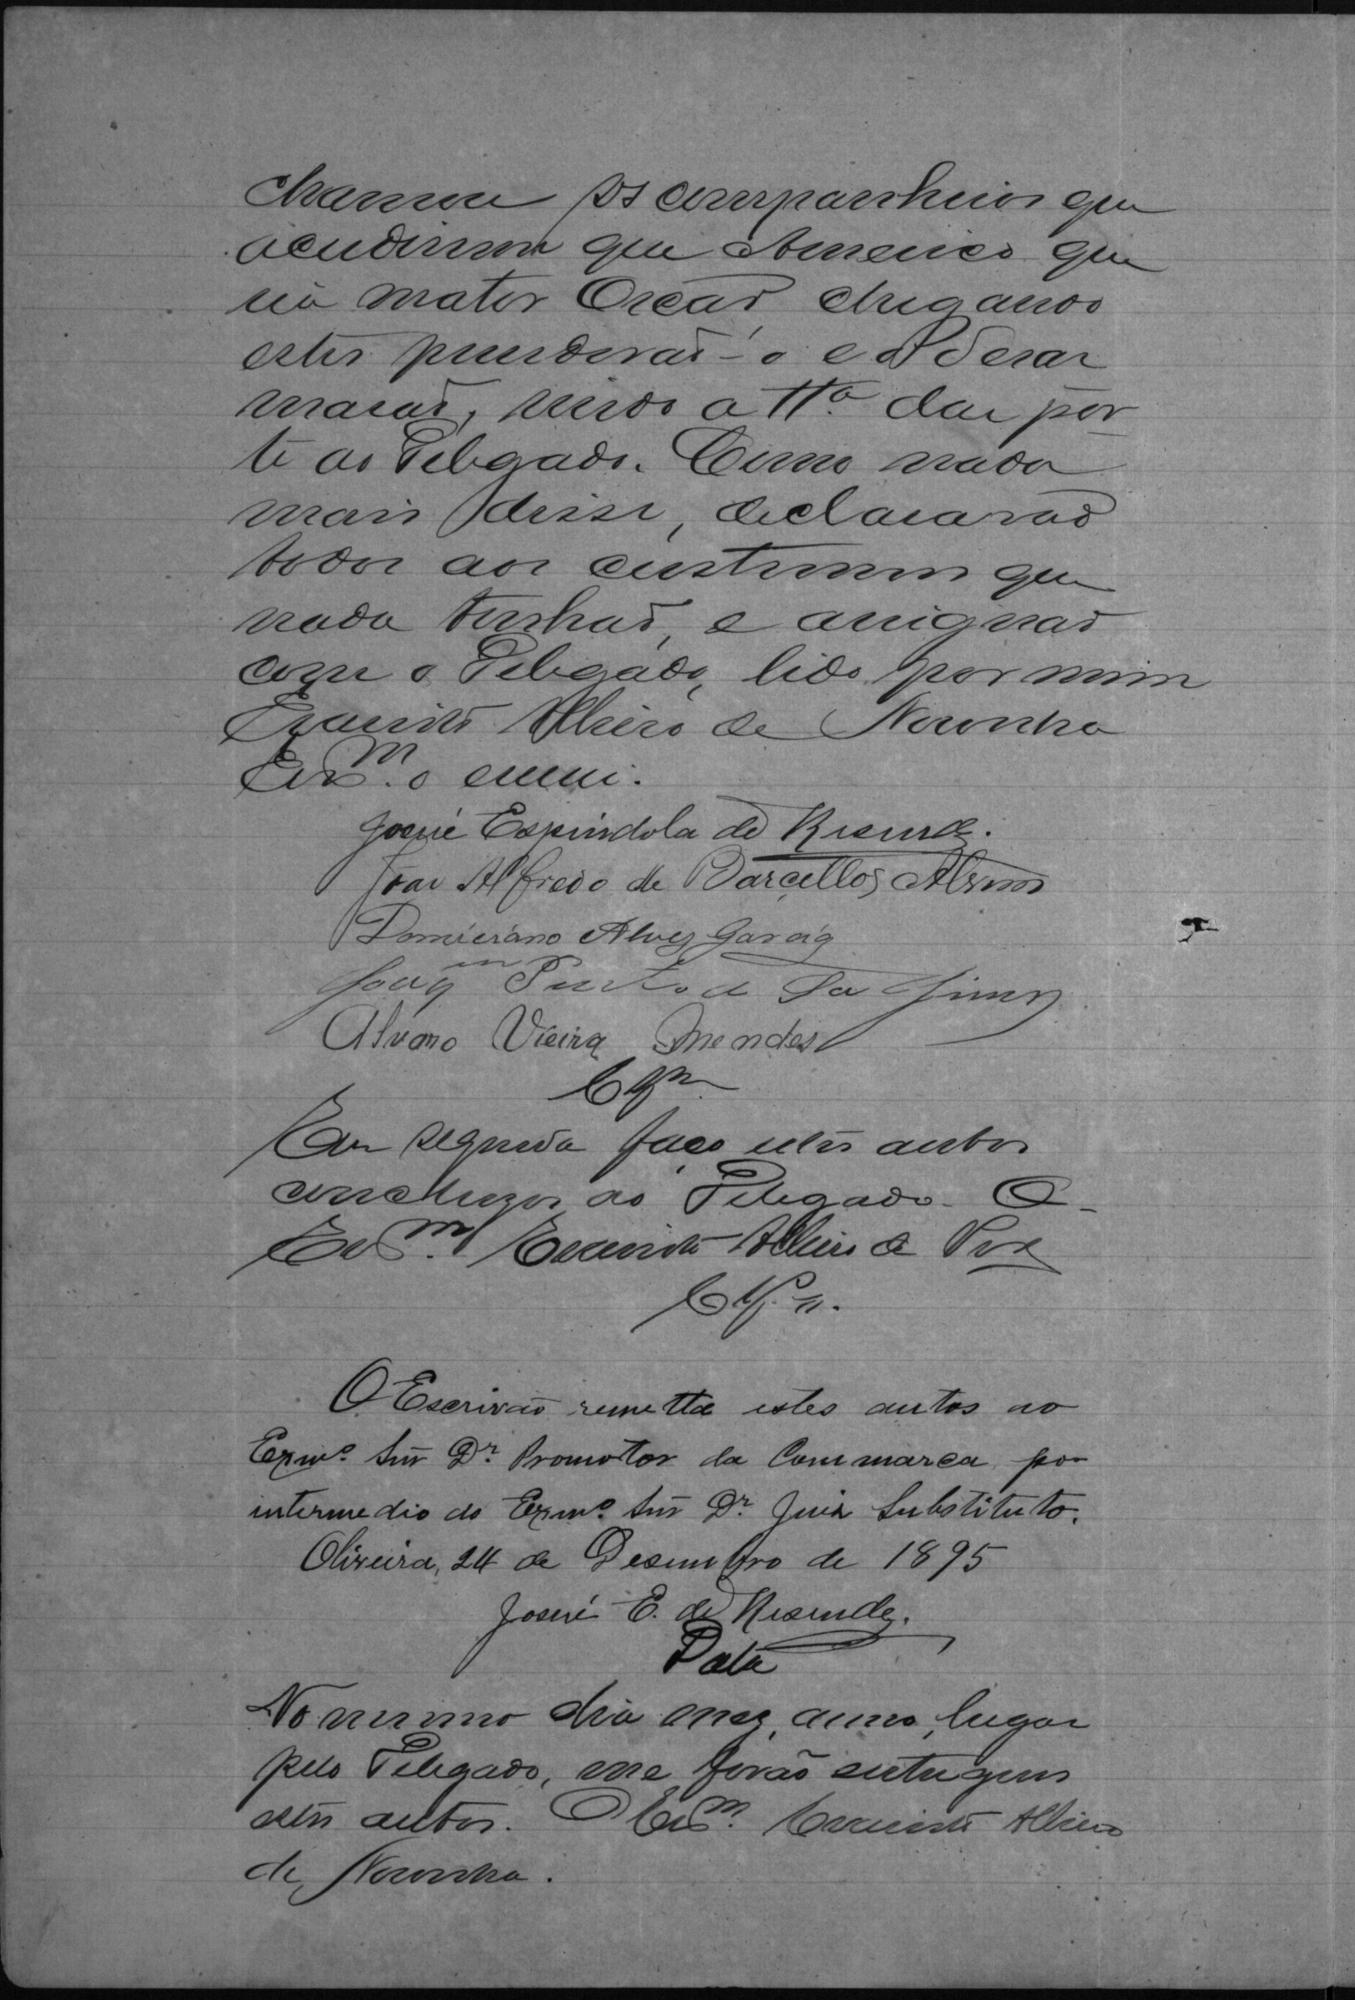 chamou os companheiros que
acudiram que Americo que
ria matar Oscar chegando
estes prenderaõ-o e o desar
maraõ, vindo a tt.ª dar par
te ao Delegado. Como nada
mais disse, declararaõ
todos aos custumes que
nada tinhaõ, e assignaõ
com o Delegado, lido por mim
Evaristo Alheiro de Noronha
Escr.m o escrevi.
Josué Espindola de Resende.
João Alfredo de Barcellos
Domiciano Alves Garcia
Joaqm Pinto de
Alvaro Vieira Mendes
Clsm
Em seguida faço estes autos
conclusos ao Delegado. O
Escr.m Evaristo Alheiro de Nra
Cls.m.
O Escrivaõ remetta estes autos ao
Exmo. Snr Dr. Promotor da Commarca por
intermedio do Exmo. Snr Dr. Juiz Substituto.
Oliveira, 24 de Desembro de 1895
Josué E. de Resende.
Data
No mesmo dia mez, anno, lugar
pelo Delegado, me foraõ entregues
estes autos. O Escr.m Evaristo Alheiro
de Noronha.